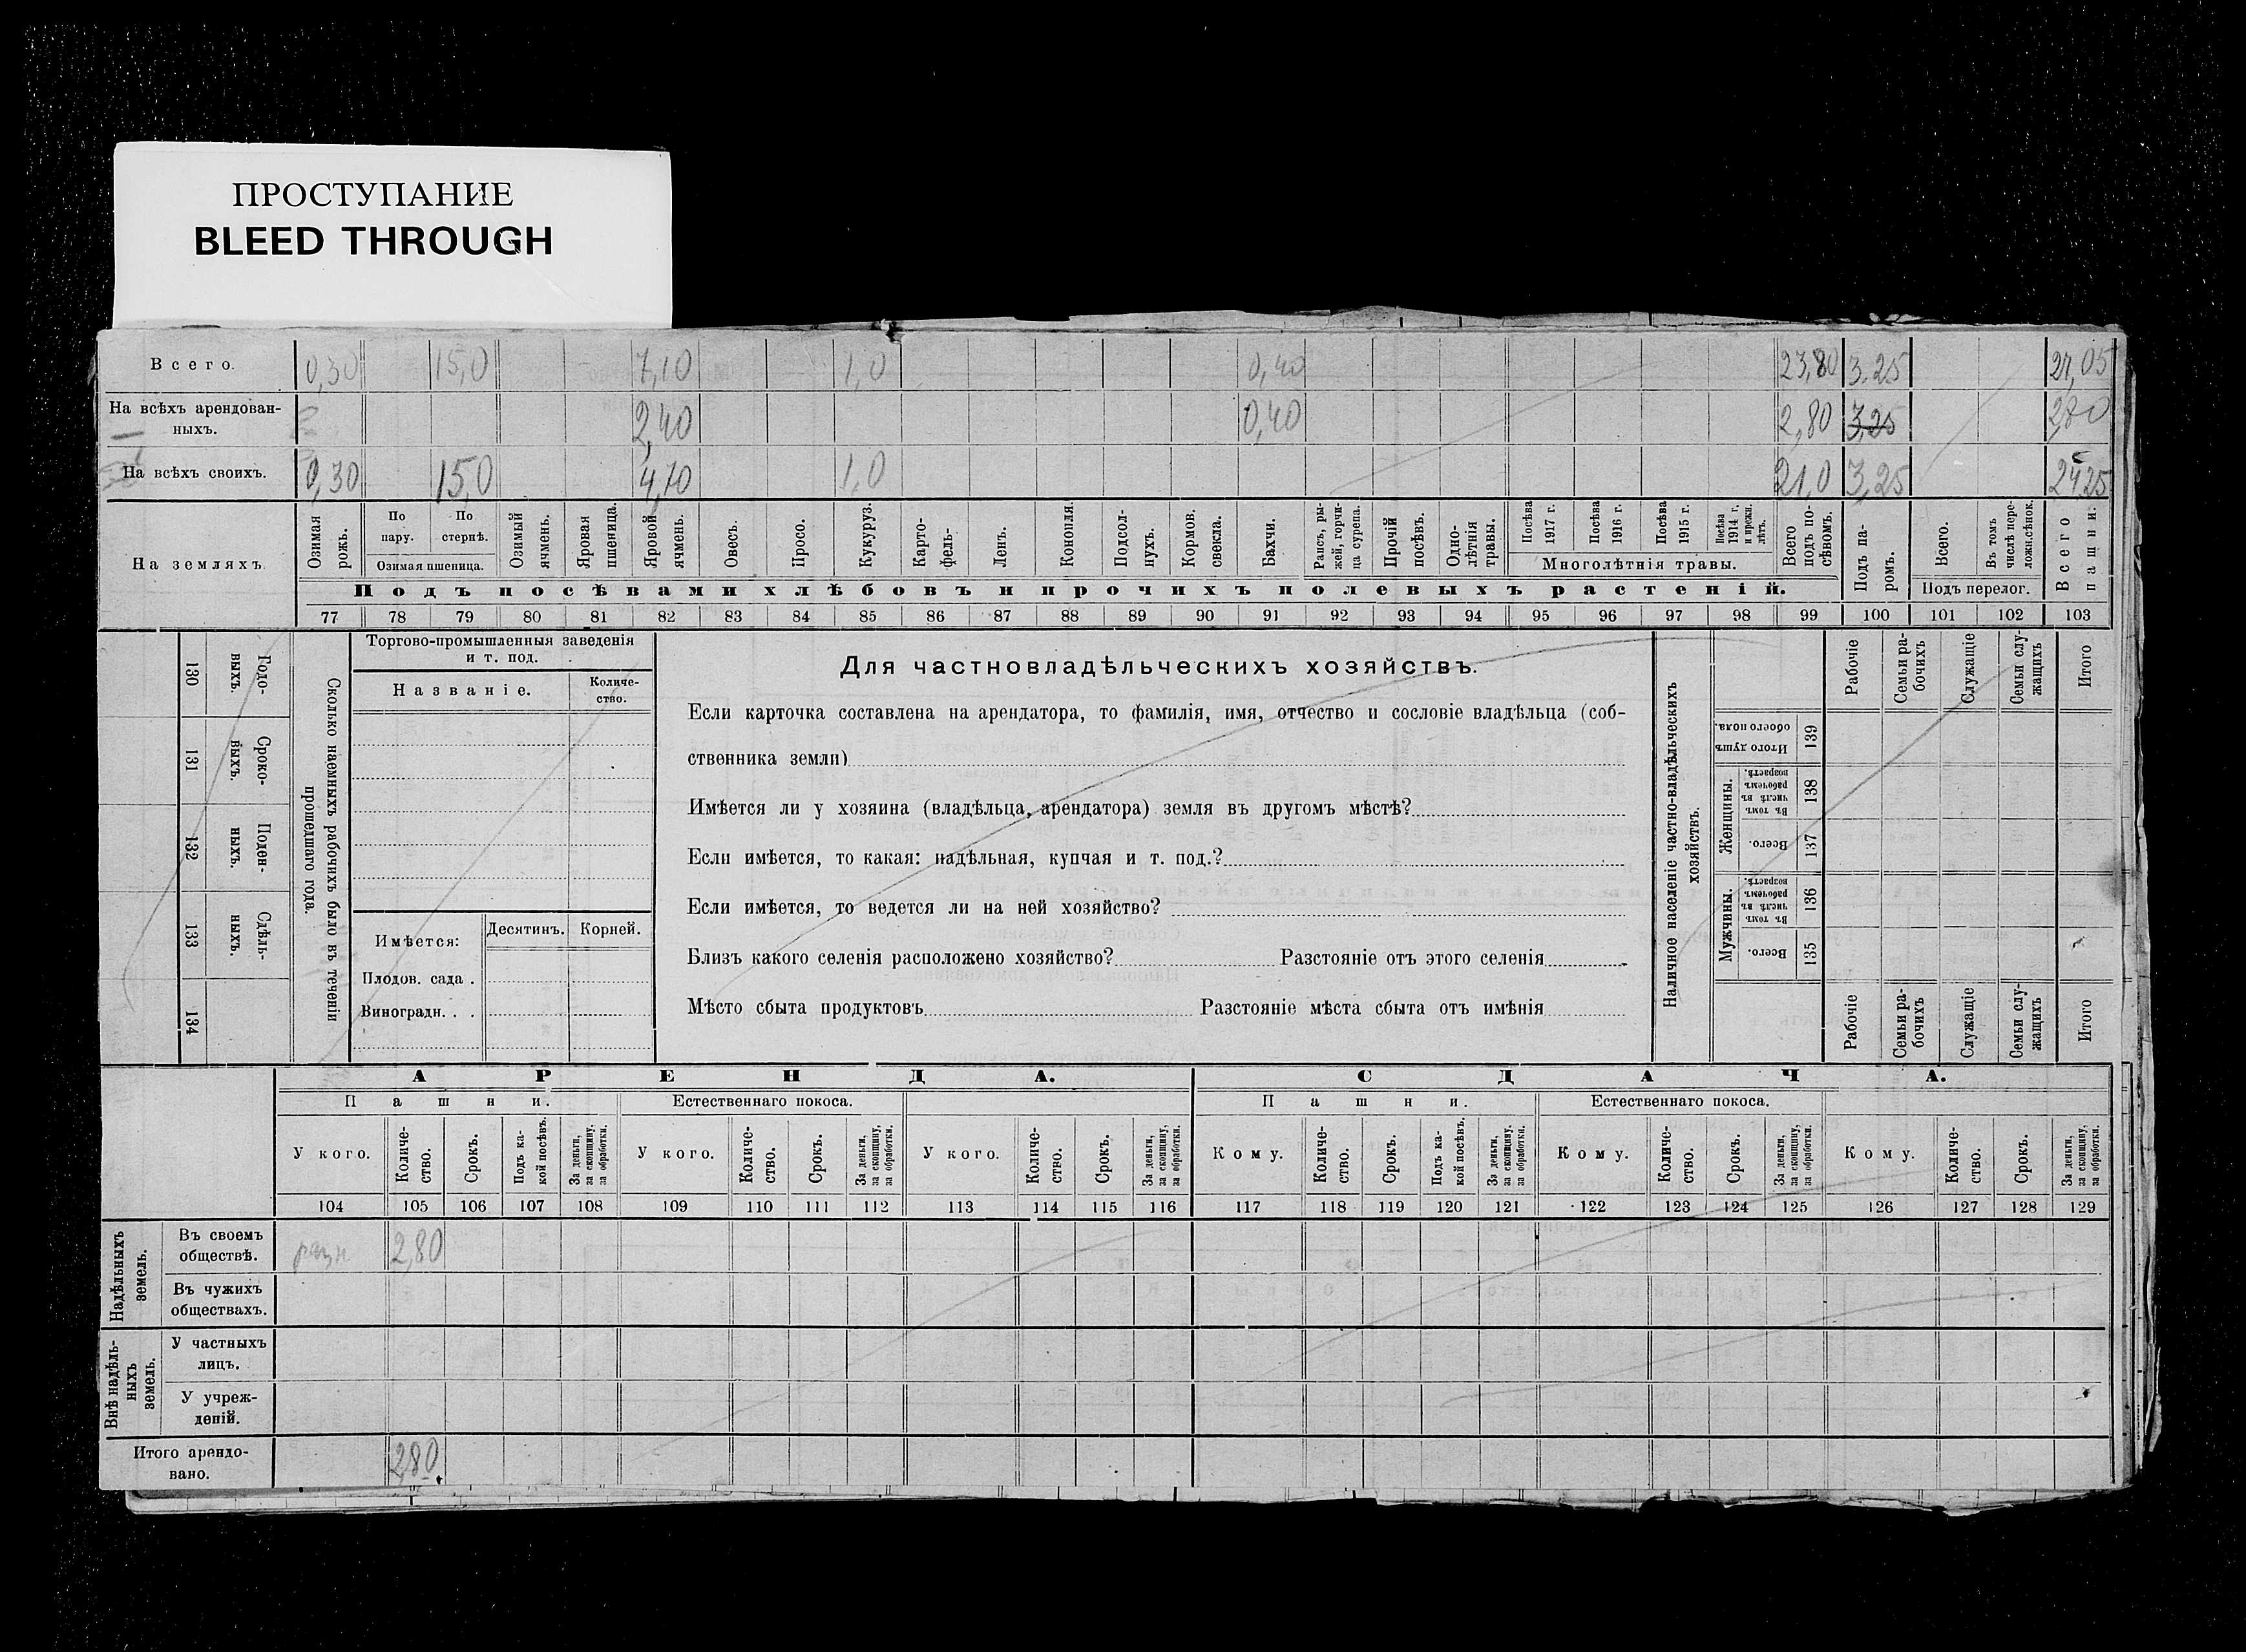 ПРОСТУПАНИЕ
BLEED THROUGH
Всего. 0,30 15,0 7,10 1,0 0,40 23,80 3.25 27,05
На всѣхъ арендован-
ныхъ. 2,40 0,40 2,80 3,25 2,80
На всѣхъ своихъ. 0,30 15,0 4,70 1,0 21,0 3,25 24,25
На земляхъ.
Озимая рожь.
По пару.
По стернѣ.
Озимая пшеница.
Озимый ячмень.
Яровая пшеница.
Яровой ячмень.
Овесъ.
Просо.
Кукуруз.
Карто-
фель-
Ленъ.
Конопля.
Подсол-
нухъ.
Кормов. свекла.
Бахчи.
Рапсъ, ры-
жей, горчи-
ца сурепа.
Прочій посѣвъ.
Одно-
лѣтнія травы.
Посѣва 1917 г.
Посѣва 1916 г.
Посѣва 1915 г.
Посѣва 1914 г. и прежн. лѣтъ.
Многолѣтнія травы.
Всего подъ по-
сѣвомъ.
Подъ па-
ромъ.
Всего.
Въ томъ числѣ пере-
ложн.сѣнок.
Подъ перелог.
Всего пашни.
Подъ посѣвами хлѣбовъ и прочихъ полевыхъ растеній.
77 78 79 80 81 82 83 84 85 86 87 88 89 90 91 92 93 94 95 96 97 98 99 100 101 102 103
130 Годо-
выхъ.
131 Сроко-
выхъ.
132 Поден-
ныхъ.
133 Сдѣль-
ныхъ.
134
Сколько наемныхъ рабочихъ было въ теченіи
прошедшаго года.
Торгово-промышленныя заведенія
и т. под.
Названіе.
Количе-
ство.
Имѣется:
Десятинъ. Корней.
Плодов. сада .
Виноградн. . .
Для частновладѣльческихъ хозяйствъ.
Если карточка составлена на арендатора, то фамилія, имя, отчество и сословіе владѣльца (соб-
ственника земли)
Имѣется ли у хозяина (владѣльца, арендатора) земля въ другомъ мѣстѣ?
Если имѣется, то какая: надѣльная, купчая и т. под.?
Если имѣется, то ведется ли на ней хозяйство?
Близъ какого селенія расположено хозяйство? Разстояніе отъ этого селенія
Мѣсто сбыта продуктовъ Разстояніе мѣста сбыта отъ имѣнія
Наличное населеніе частно-владѣльческихъ
хозяйствъ.
Рабочіе
Семьи ра-
бочихъ
Служащіе
Семьи слу-
жащихъ
Итого
Итого душъ обоего пола. 139
Женщины.
Въ томъ числѣ въ рабочемъ возрастѣ. 138
Всего. 137
Мужчины.
Въ томъ числѣ въ рабочемъ возрастѣ. 136
Всего. 135
Рабочіе
Семьи ра-
бочихъ
Служащіе
Семьи слу-
жащихъ
Итого
АРЕНДА. СДАЧА.
Пашни. Естественнаго покоса. Пашни. Естественнаго покоса.
У кого.
Количе-
ство.
Срокъ.
Подъ ка-
кой посѣвъ.
За деньги,
за скопщину,
за обработки.
У кого.
Количе-
ство.
Срокъ.
За деньги,
за скопщину,
за обработки.
У кого.
Количе-
ство.
Срокъ.
За деньги,
за скопщину,
за обработки.
Кому.
Количе-
ство.
Срокъ.
Подъ ка-
кой посѣвъ.
За деньги,
за скопщину,
за обработки.
Кому.
Количе-
ство.
Срокъ.
За деньги,
за скопщину,
за обработки.
Кому.
Количе-
ство.
Срокъ.
За деньги,
за скопщину,
за обработки.
104 105 106 107 108 109 110 111 112 113 114 115 116 117 118 119 120 121 122 123 124 125 126 127 128 129
Надѣльныхъ
земель.
Въ своемъ
обществѣ. разн 2,80
Въ чужихъ
обществахъ.
Внѣ надѣль-
ныхъ
земель.
У частныхъ
лицъ.
У учреж-
деній.
Итого арендо-
вано. 2,80